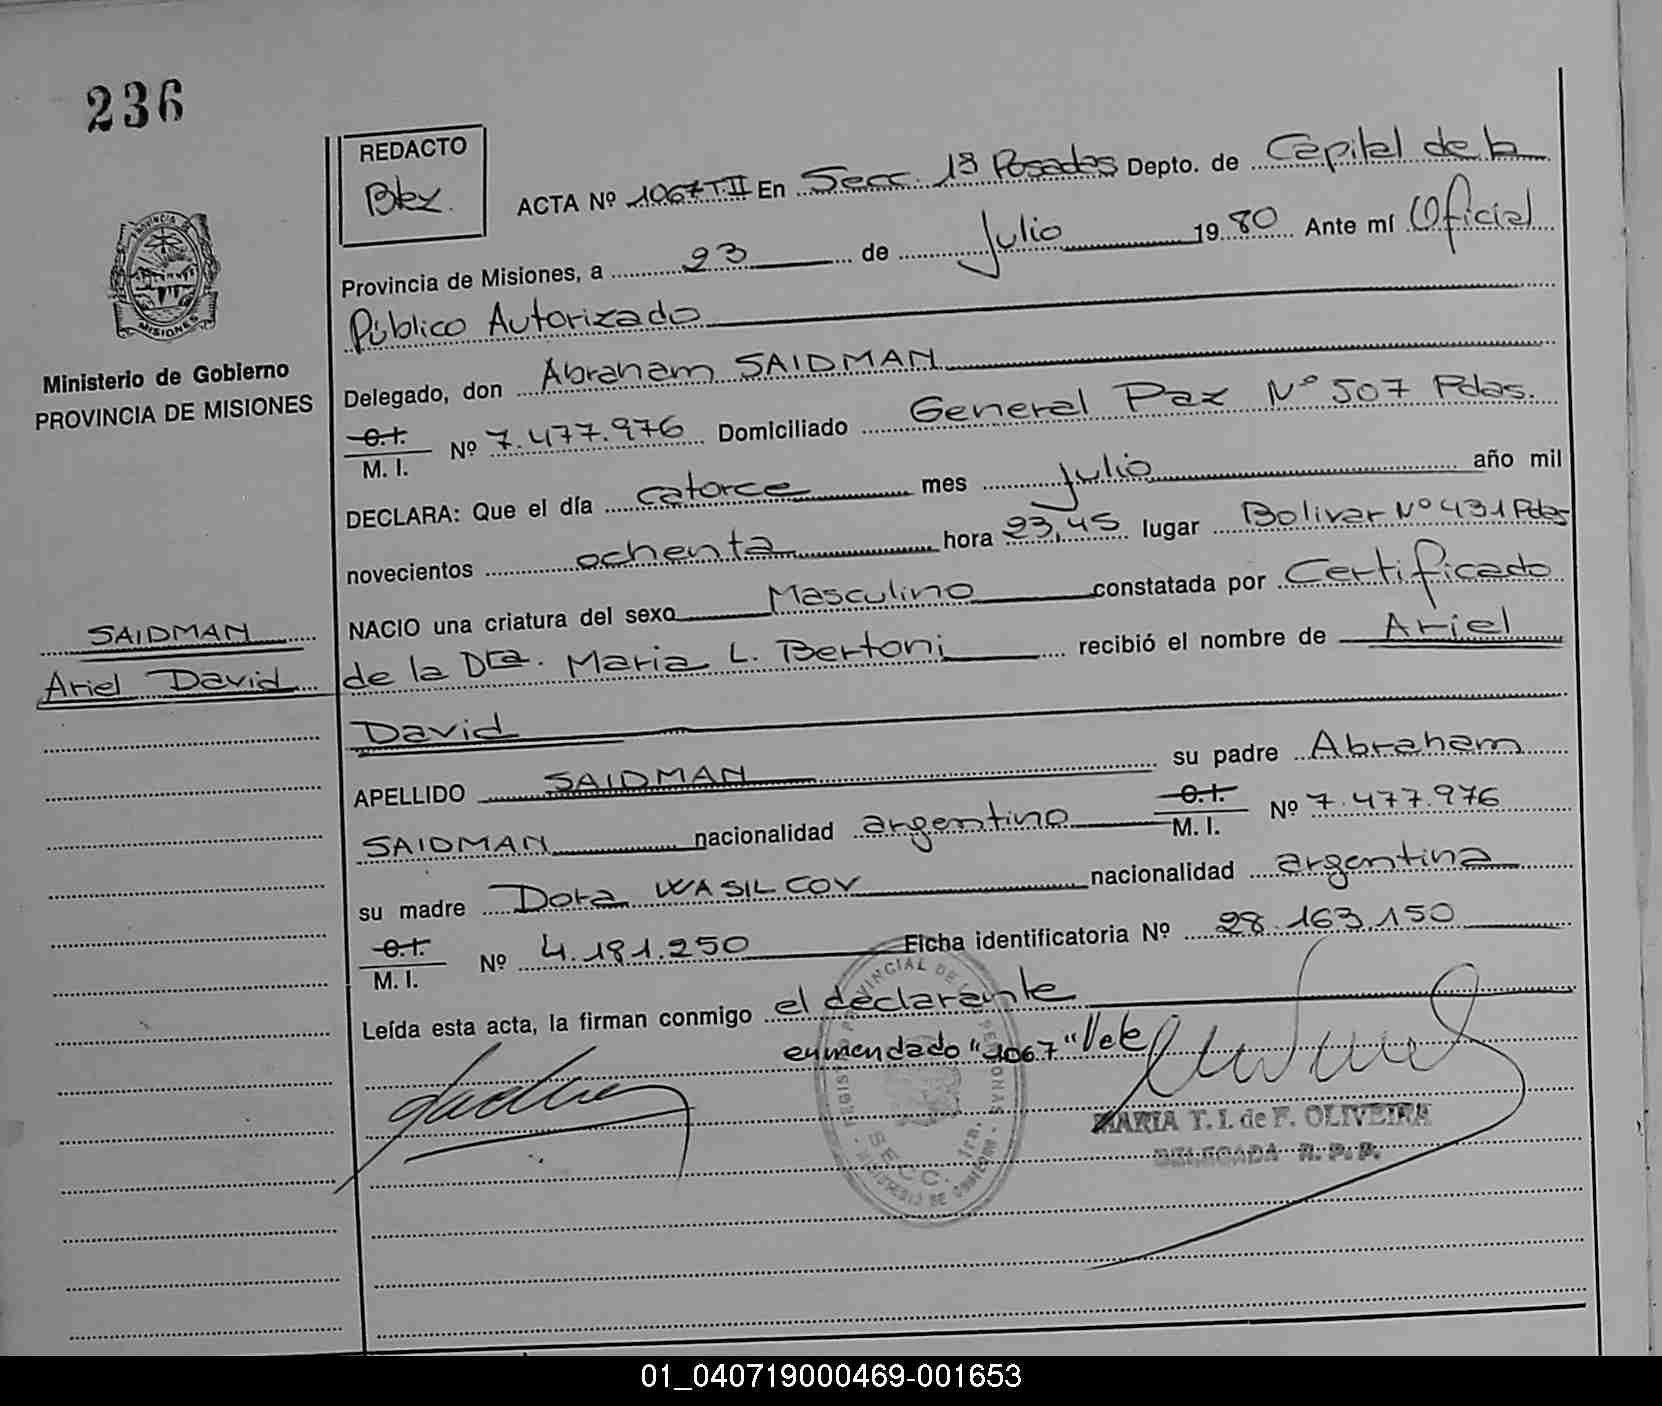 236
REDACTO
Bky.
ACTA Nº 1067 T.II En Secc. 1ª Posadas Depto. de Capital de la
Provincia de Misiones, a 23 de Julio 19 80 Ante mí Oficial
Público Autorizado
PROVINCIA
MISIONES
Ministerio de Gobierno
PROVINCIA DE MISIONES
Delegado, don Abraham SAIDMAN
C.I.
M. I. Nº 7.477.976 Domiciliado General Paz Nº 507 Pdas.
DECLARA: Que el día catorce mes julio año mil
novecientos ochenta hora 23,45 lugar Bolivar Nº 431 Pdas
NACIO una criatura del sexo Masculino constatada por Certificado
de la Dra. Maria L. Bertoni recibió el nombre de Ariel
David
SAIDMAN
Ariel David
APELLIDO SAIDMAN su padre Abraham
SAIDMAN nacionalidad argentino C.I.
M. I. Nº 7.477.976
su madre Dora WASILCOV nacionalidad argentina
C.I.
M. I. Nº 4.181.250 Ficha identificatoria Nº 28.163.150
Leída esta acta, la firman conmigo el declarante
enmendado "1067" Vale
REGISTRO PROVINCIAL DE LAS PERSONAS
SECC. 1ra.
MINISTERIO DE GOBIERNO
MARIA T. I. de F. OLIVEIRA
DELEGADA R. P. P.
01_040719000469-001653